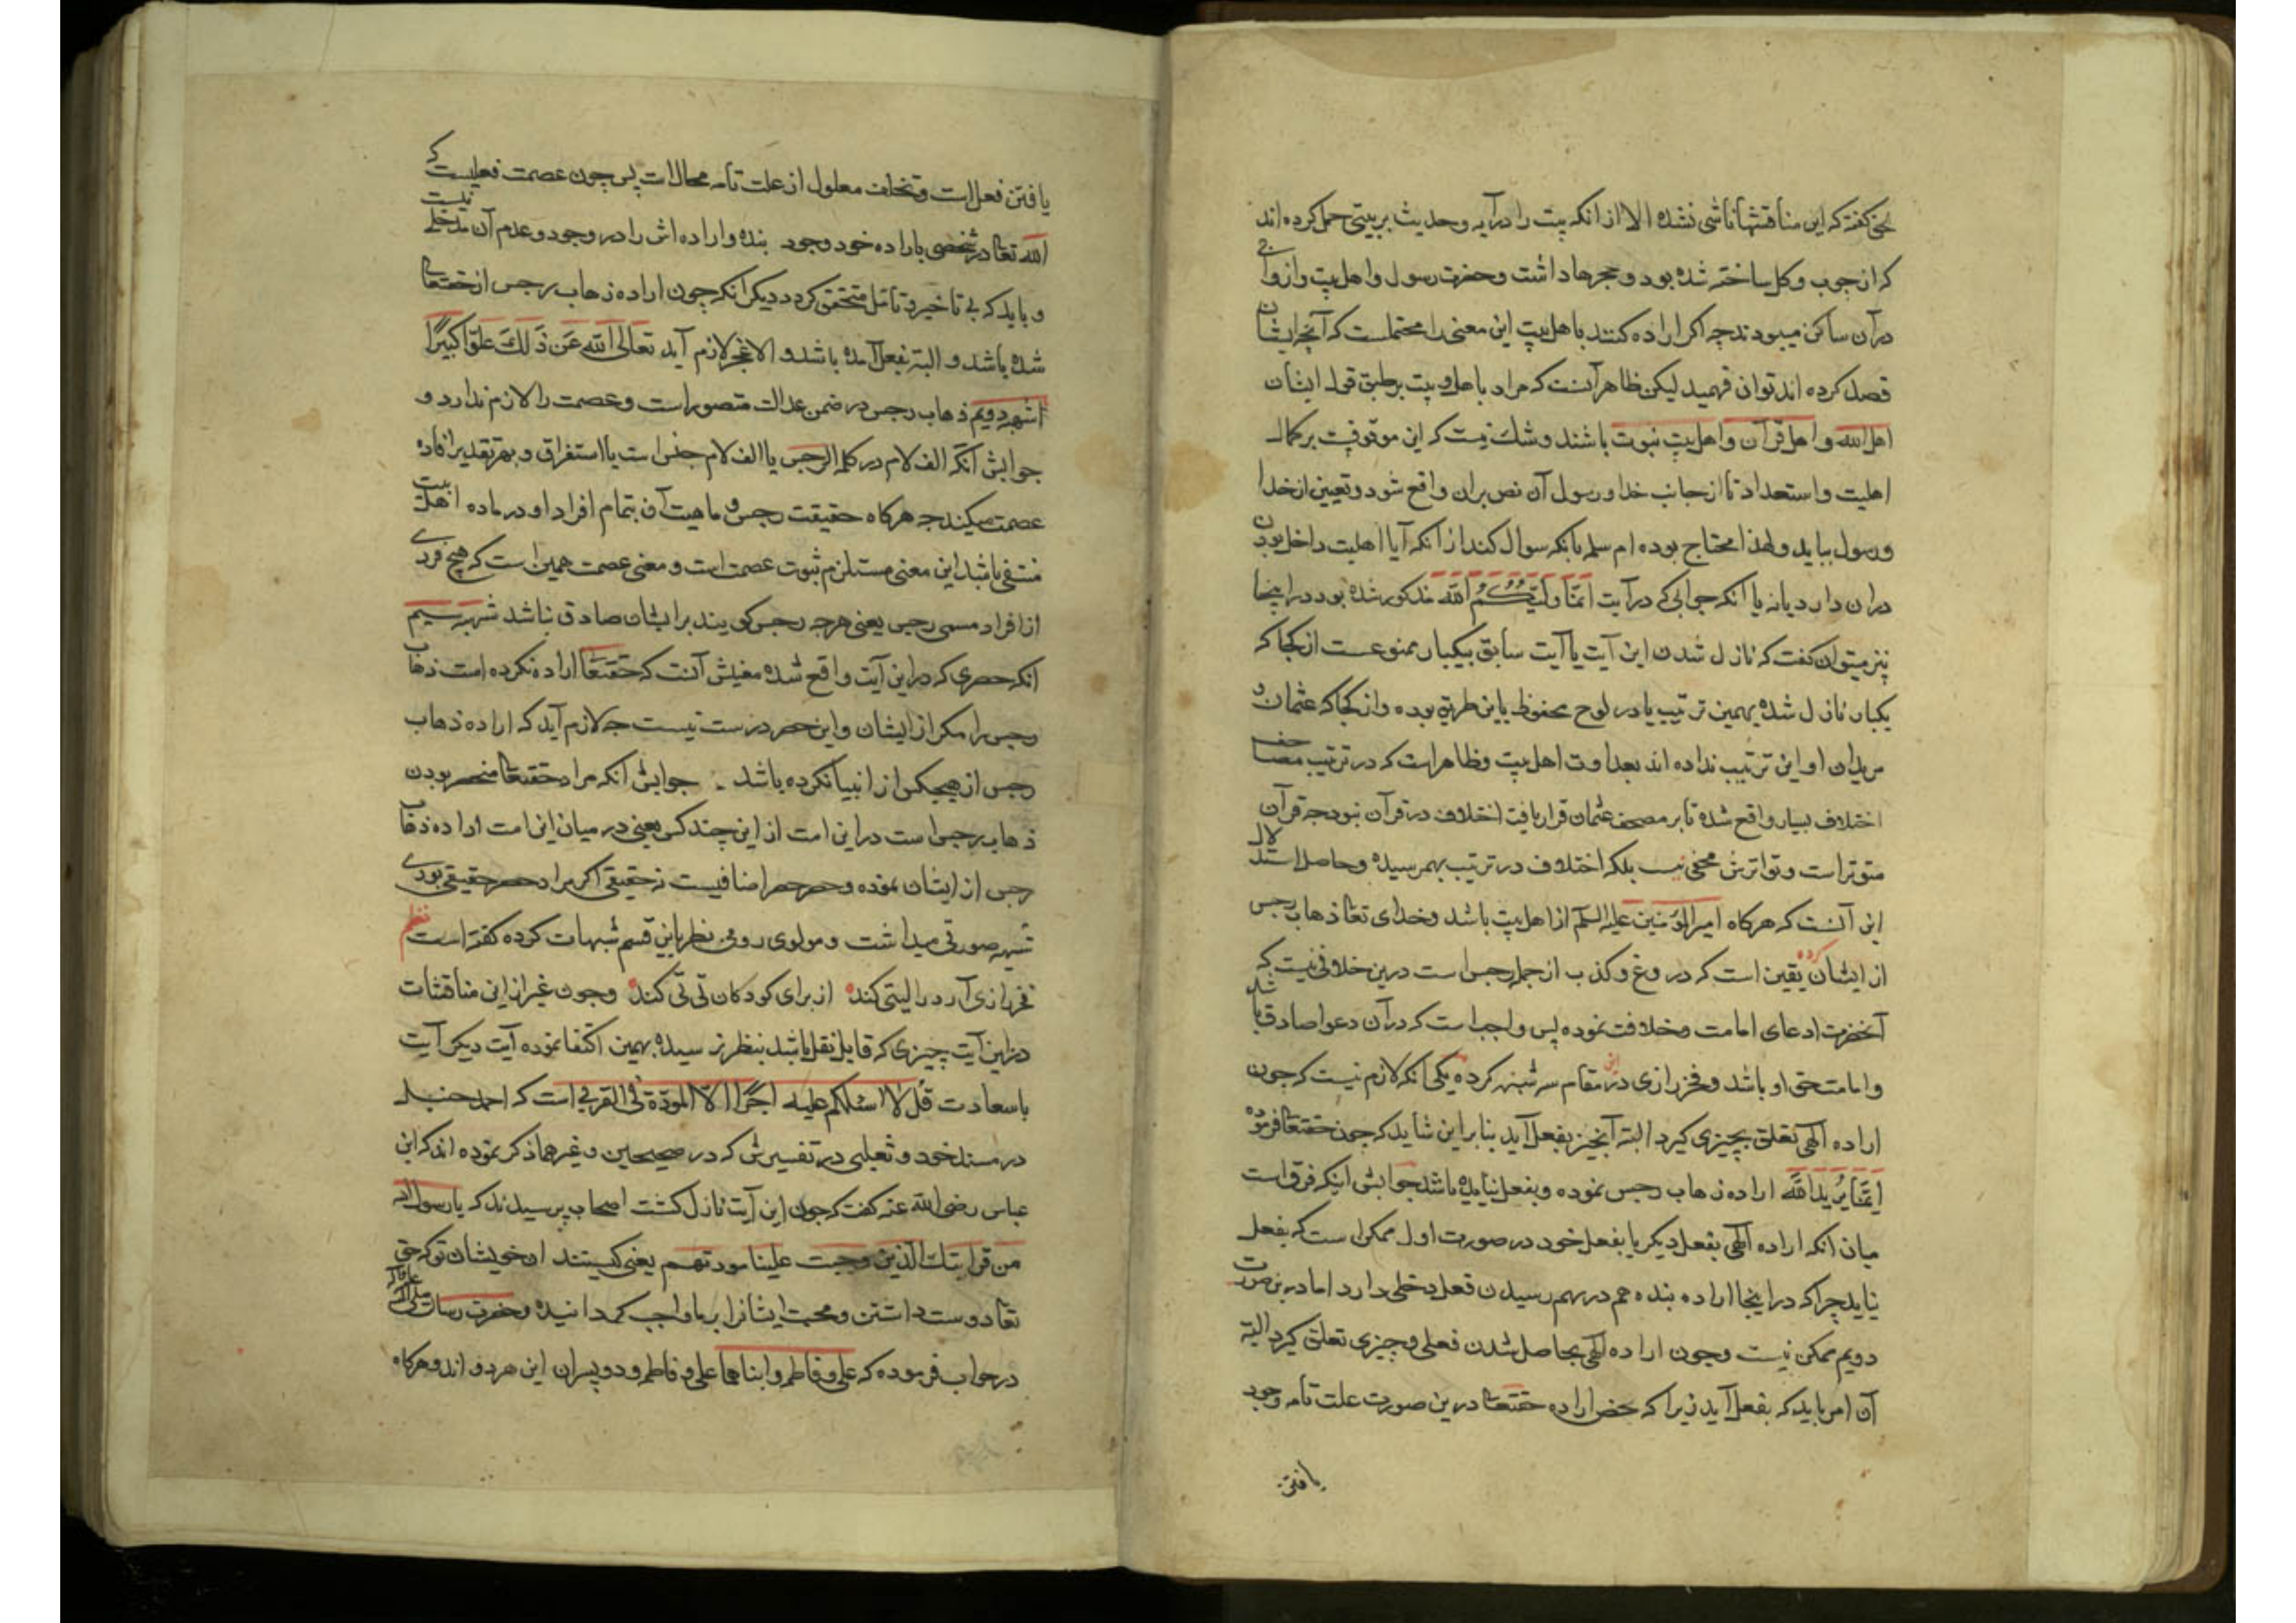 گفته که این مناقشتها ناشی نشده الا از انکه بیت را در آیه و حدیث بر بیتی حمل کرده اند
که از چوب و کل ساخته شده بود و حجرها داشت و حضرت رسول و اهل بیت و ازواج
در آن ساکن میبودند چه اکر اراده کنند باهل بیت این معنی را محتملست که آنچه ایشان
قصد کرده اند توان فهمید لیکن ظاهر آنست که مراد باهل بیت بر طبق قول ایشان
اهل الله و اهل قرآن و اهل بیت نبوت باشند و شک نیست که این موقوفست بر کمال
اهلیت و استعداد تا از جانب خدا و رسول آن نص بران واقع شود و تعیین از خدا
و رسول بباید و لهذا محتاج بوده ام سلمه بانکه سوال کند از انکه آیا اهلیت داخل بودن
دران دارد یا نه یا آنکه جوابی که در آیت انما ولیکم الله مذکور شده بود در اینجا
نیز میتوان کفت که نازل شدن این آیت با آیت سابق بیکبار ممنوعست از کجا که
یکبار نازل شده بهمین ترتیب یا در لوح محفوظ باین طریق بوده و از کجا که عثمان و
مریدان او این ترتیب نداده اند بعداوت اهل بیت و ظاهر است که در ترتیب مصاحف
اختلاف بسیار واقع شده تا بر مصحف عثمان قرار یافت اختلاف در قرآن نبود چه قرآن
متوتر است و تواترش مخفی نیست بلکه اختلاف در ترتیب بهمرسیده و حاصل استدلال
این آنست که هرکاه امیرالمؤمنین علیه السلم از اهل بیت باشد و خدای تعا ذهاب رجس
از ایشان کرده یقین است که دروغ و کذب از جمله رجس است درین خلافی نیست که
آنحضرت ادعای امامت و خلافت نموده پس واجب است که در آن دعوا صادق باشد
و امامت حق او باشد و فخر رازی در این مقام سه شبهه کرده یکی انکه لازم نیست که چون
اراده الهی تعلق بچیزی کیرد البته آنچیز بفعل آید بنابراین شاید که چون حقتعا فرموده
انما یرید الله اراده ذهاب رجس نموده و بفعل نیامده باشد جوابش اینکه فرق است
میان انکه اراده الهی بفعل دیکر یا بفعل خود در صورت اول ممکن است که بفعل
نیاید چرا که در اینجا اراده بنده هم در بهم رسیدن فعل دخلی دارد اما در صورت
دویم ممکن نیست و چون اراده الهی بحاصل شدن فعلی و چیزی تعلق کیرد البته
آن امر باید که بفعل آید زیرا که محض اراده حقتعا درین صورت علت تامه وجود
یافتن
یافتن فعل است و تخلف معلول از علت تامه محالات پس چون عصمت فعلیست که
الله تعا در شخصی باراده خود وجود بنده و اراده اش را در وجود و عدم آن مدخلی نیست
و باید که بی تاخیر و تامل متحقق کردد دیکر انکه چون اراده ذهاب رجس از حقتعا
شده باشد و البته بفعل آمده باشد و الا عجز لازم آید تعالی الله عن ذلک علوا کبیرا
شبهه دویم ذهاب رجس در ضمن عدالت متصور است و عصمت را لازم ندارد و
جوابش آنکه الف لام در کلمه الرجس یا الف لام جنس است یا استغراق و بهر تقدیر افاده
عصمت میکند چه هرکاه حقیقت رجس و ماهیت آن بتمام افراد او در ماده اهل بیت
منتفی باشد این معنی مستلزم ثبوت عصمت است و معنی عصمت همین است که هیچ فردی
از افراد مسمی رجس یعنی هرچه رجس کویند بر ایشان صادق نباشد شبهه سیم
انکه حصری که در این آیت واقع شده معنیش آنست که حقتعا اراده نکرده است ذهاب
رجس را مکر از ایشان و این حصر درست نیست چه لازم آید که اراده ذهاب
رجس از هیچکس از انبیا نکرده باشد جوابش انکه مراد حقتعا منحصر بودن
ذهاب رجس است در این امت از این چند کس یعنی در میان این امت اراده ذهاب
رجس از ایشان نموده و حصر حصر اضافیست نه حقیقی اکر مراد حصر حقیقی بودی
شبهه صورتی میداشت و مولوی رومی نظر باین قسم شبهات کرده کفته است نظم
فخر رازی آرد را لیتی کند از برای کودکان تی تی کند و چون غیر از این مناقشات
در این آیت چیزی که قابل نقل باشد بنظر نرسیده بهمین اکتفا نموده آیت دیکر آیت
باسعادت قل لا اسئلکم علیه اجرا الا المودة فی القربی است که احمد حنبل
در مسند خود و ثعلبی در تفسیرش که در صحیحین و غیرهما ذکر نموده اند که ابن
عباس رضی الله عنه کفت که چون این آیت نازل کشت اصحاب پرسیدند که یا رسول الله
من قرابتک الذین وجبت علینا مودتهم یعنی کیستند ان خویشان تو که حق
تعا دوست داشتن و محبت ایشانرا بر ما واجب کردانیده و حضرت رسالت صلی الله علیه و آله
در جواب فرموده که علی و فاطمه و ابناهما علی و فاطمه و دو پسران این هر دو اند و هرکاه